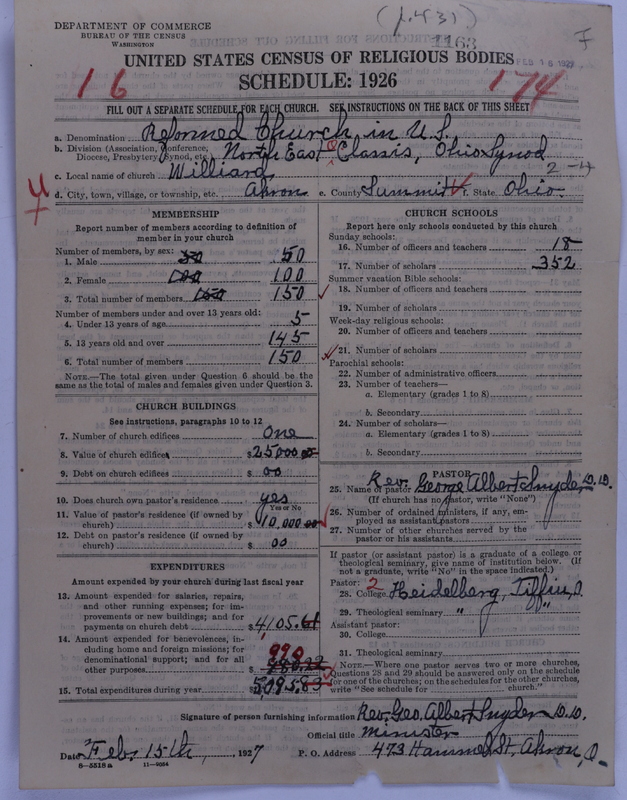 (p. 431)
DEPARTMENT OF COMMERCE
BUREAU OF THE CENSUS
WASHINGTON
1163
7
UNITED STATES CENSUS OF RELIGIOUS BODIES
FEB 16 1927
SCHEDULE: 1926
16
174
FILL OUT A SEPARATE SCHEDULE FOR EACH CHURCH. SEE INSTRUCTIONS ON THE BACK OF THIS SHEET
a. Denomination Reformed Church in U.S.
b. Division (Association, Conference, Diocese, Presbytery, Synod, etc.) North East Classis, Ohio Synod
c. Local name of church Williard 2-4
d. City, town, village, or township, etc. Akron e. County Summit f. State Ohio.
MEMBERSHIP
Report number of members according to definition of member in your church
Number of members, by sex:
1. Male 50
2. Female 100
3. Total number of members 150
Number of members under and over 13 years old:
4. Under 13 years of age 5
5. 13 years old and over 145
6. Total number of members 150
NOTE.—The total given under Question 6 should be the same as the total of males and females given under Question 3.
CHURCH BUILDINGS
See instructions, paragraphs 10 to 12
7. Number of church edifices One
8. Value of church edifices $25000.00
9. Debt on church edifices $00
10. Does church own pastor's residence yes
Yes or No
11. Value of pastor's residence (if owned by church) $10,000.00
12. Debt on pastor's residence (if owned by church) $00
EXPENDITURES
Amount expended by your church during last fiscal year
13. Amount expended for salaries, repairs, and other running expenses; for improvements or new buildings; and for payments on church debt $4105.61
14. Amount expended for benevolences, including home and foreign missions; for denominational support; and for all other purposes 990 $
15. Total expenditures during year $5095.83
CHURCH SCHOOLS
Report here only schools conducted by this church
Sunday schools:
16. Number of officers and teachers 18
17. Number of scholars 352
Summer vacation Bible schools:
18. Number of officers and teachers
19. Number of scholars
Week-day religious schools:
20. Number of officers and teachers
21. Number of scholars
Parochial schools:
22. Number of administrative officers
23. Number of teachers—
a. Elementary (grades 1 to 8)
b. Secondary
24. Number of scholars—
a. Elementary (grades 1 to 8)
b. Secondary
PASTOR
25. Name of pastor Rev. George Albert Snyder D.D.
(If church has no pastor, write "None")
26. Number of ordained ministers, if any, employed as assistant pastors
27. Number of other churches served by the pastor or his assistants
If pastor (or assistant pastor) is a graduate of a college or theological seminary, give name of institution below. (If not a graduate, write "No" in the space indicated.)
Pastor: 2
28. College Heidelberg, Tiffin, O.
29. Theological seminary " "
Assistant pastor:
30. College
31. Theological seminary
NOTE.—Where one pastor serves two or more churches, Questions 28 and 29 should be answered only on the schedule for one of the churches; on the schedules for the other churches, write "See schedule for church."
Signature of person furnishing information Rev. Geo. Albert Snyder D.D.
Official title Minister
Date Feb. 15th, 1927 P. O. Address 473 Hammel St. Akron, O.
8-5518a 11-9054